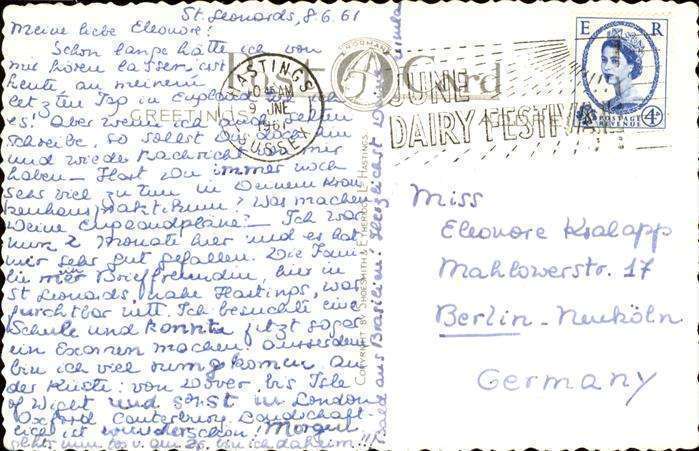 St. Leonards, 8.6.61
Meine liebe Eleonore!
Schon lange hätte ich von
mir hören lassen, erst
heute an meinem
letzten Tag in England
es! Aber wenn ich auch selten
schreibe, so sollst Du doch
und wieder Nachricht
haben – Hast Du immer noch
sehr viel zu tun in Deinem Kran-
kenhauspraktikum? Was machen
Deine Englandpläne? – Ich war
nur 2 Monate hier und es hat
mir sehr gut gefallen. Die Fami-
lie Brieffreundin, hier in
St Leonards, nahe Hastings, war
furchtbar nett. Ich besuchte eine
Schule und konnte jetzt sogar
ein Examen machen. Ausserdem
bin ich viel rumgekommen, an
der Küste: von Dover bis Isle
of Wight und sonst in London
Oxford Canterbury. Landschaft-
lich ist wunderschön! Morgen
geht's nun los u. am bin ich daheim!!!
Bald aus Brasilien. Herzlichst Deine Ursula
Post Card
GREETINGS
NORMAN
COPYRIGHT BY SHOESMITH & ETHERIDGE LTD HASTINGS
HASTINGS
10 45 AM
9 JNE
1961
SUSSEX
JUNE
DAIRY FESTIVAL
E R
POSTAGE
REVENUE
4D
Miss
Eleonore Kralapp
Mahlowerstr. 17
Berlin - Neuköln
Germany